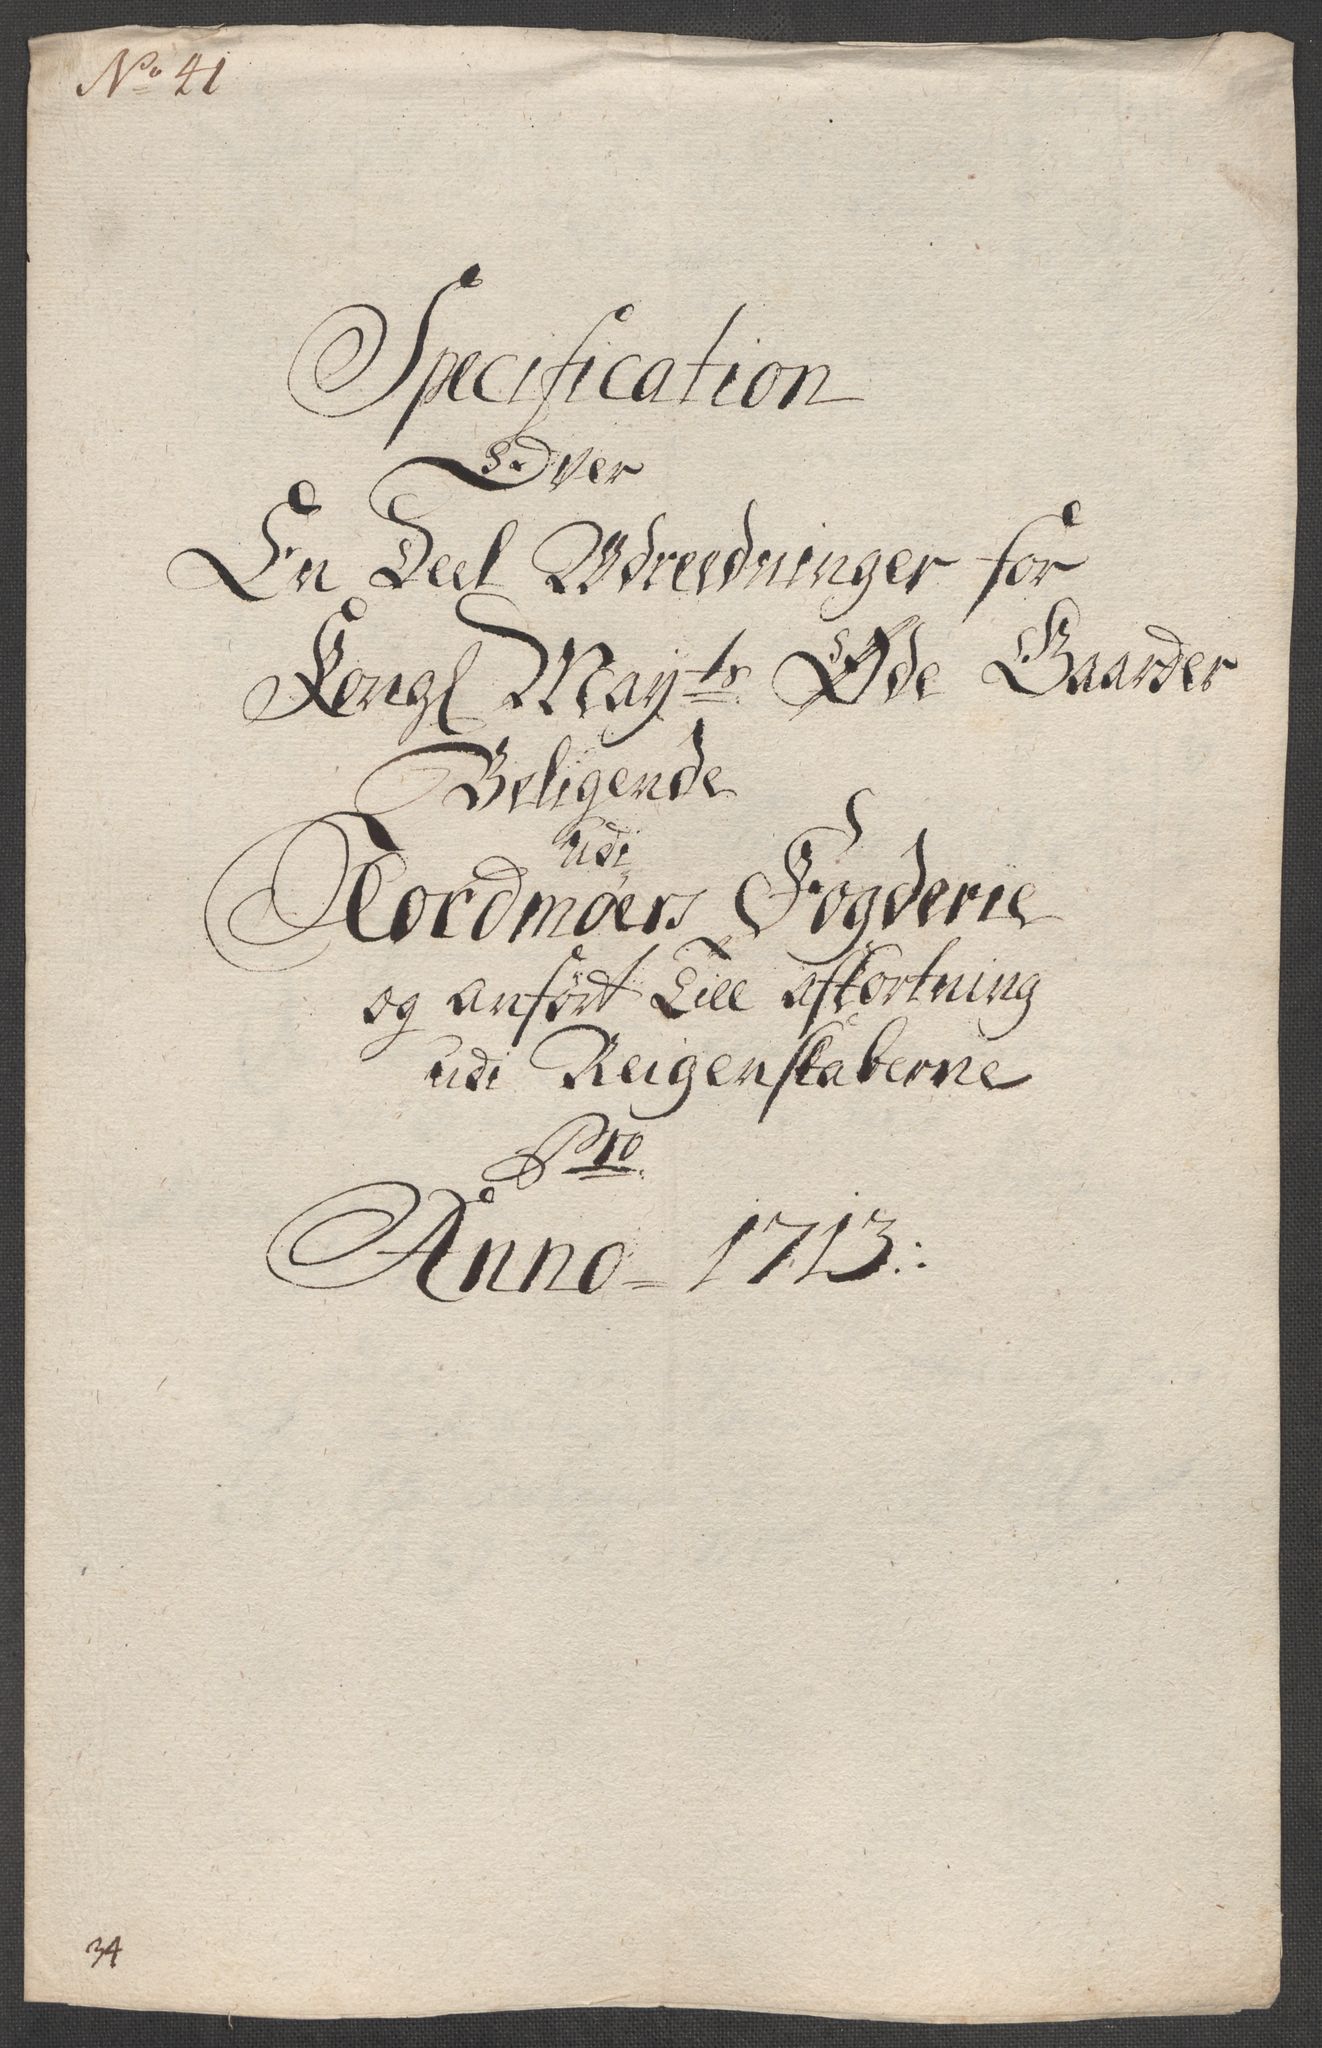 No 41
Specification
Over
En Deel Udreedninger for
Kongl Mayts Øde Gaarder
Beligende
udi
Nordmøers Fogderie
og anført Till afkortning
udi Reigenskaberne
Pro
Anno = 1713:
34